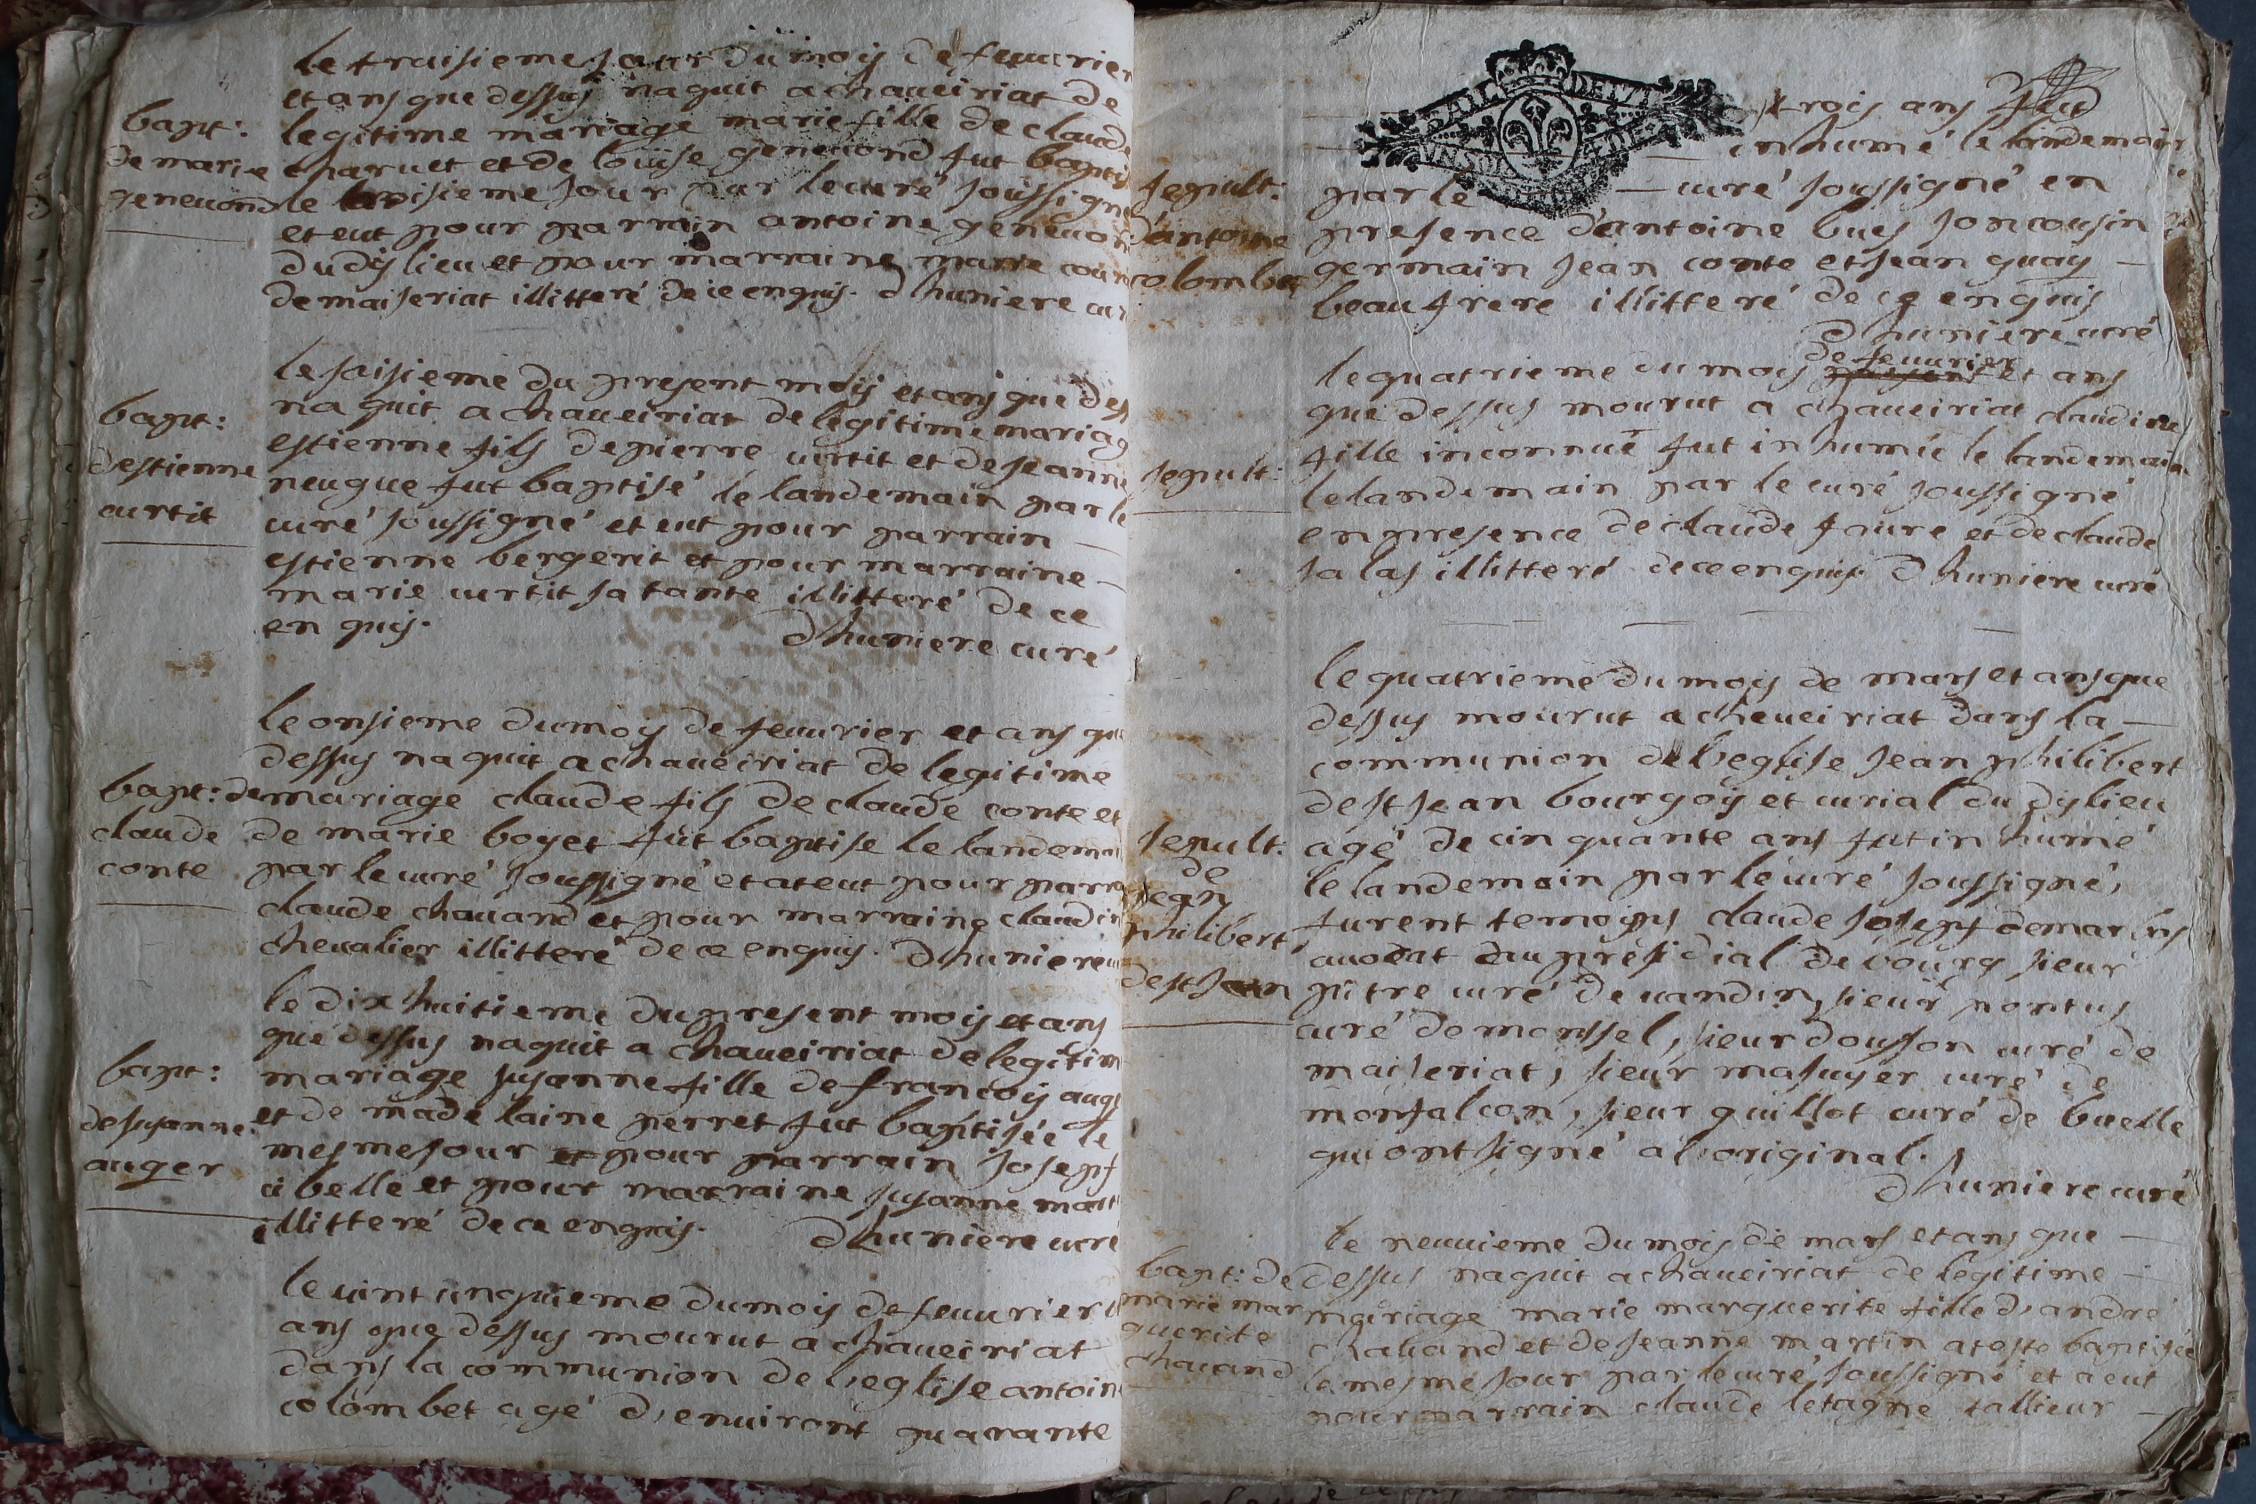 le troisieme jour du moy de feuurier
et ans que dessus naquit a chaueiriat de
legitime mariage marie fille de claude
charuet et de louise geneuond fut bapti
le troisieme jour par le curé soussigné
et eut pour parrain antoine geneuon
dudy lieu et pour marraine marie
de maiseriat illitteré de ce enquis. Dhuniere cu
bapt:
de marie
geneuond
le saisieme du present moy et ans que des
naquit a chaueiriat de legitime mariag
estienne fils de pierre curtit et de jeanne
neugue fut baptisé le landemain par le
curé soussigné et eut pour parrain
estienne bergerit et pour marraine
marie curtit sa tante illitteré de ce
enquis. Dhuniere curé
bapt:
destienne
curtit
le onsieme du moy de feuurier et ans qu
dessus naquit a chaueiriat de legitime
mariage claude fils de claude conte et
de marie boyet fut baptise le landemai
par le curé soussigné et at eut pour parra
claude chauand et pour marraine claudin
cheualier illitteré de ce enquis. Dhuniere cu
bapt: de
claude
conte
le dix huitieme du present moy et ans
que dessus naquit a chaueiriat de legitim
mariage susanne fille de francoy auge
et de madelaine perret fut baptisée le
mesme jour et pour parrain josepf
abelle et pour marraine susanne mart
illitteré de ce enquis. Dhuniere curé
bapt:
de susanne
auger
le uint cinquieme du moy de feuurier
ans que dessus mourut a chaueiriat
dans la communion de l'eglise antoin
colombet agé d'enuiront quarante
trois ans fut
inhumé le landemain
par le curé soussigné en
presence d'antoine bues son cousin
germain jean conte et jean quay
beaufrere illitteré de ce enquis
Dhuniere curé
sepult:
d'antoine
colombet
de feuurier
le quatrieme du mois present et ans
que dessus mourut a chaueiriat claudine
fille inconnuë fut inhumée le landemain
le landemain par le curé soussigné
en presence de claude faure et de claude
salas illitteré de ce enquis Dhuniere curé
sepult:
le quatrieme du moy de mars et ans que
dessus mourut a cheueiriat dans la
communion de l'eglise jean philibert
de st jean bourgoy et curial du dy lieu
agé de cinquante ans fut inhumé
le landemain par le curé soussigné,
furent temoins claude josepf demarins
auocat au presidial de bourg sieur
pitre curé de uandin, sieur pontus
curé de monssel, sieur dousson curé de
maiseriat, sieur masuyer curé de
monfalcon, sieur guillot curé de buelle
qui ont signé a l'original.
Dhuniere curé
sepult:
de
jean
philibert
de st jean
le neuuieme du mois de mars et ans que
dessus naquit a chaueiriat de legitime
mariage marie marguerite fille d'andré
chauand et de jeanne martin at este baptisée
le mesme jour par le curé soussigné et a eut
pour parrain claude letagne tallieur
bapt: de
marie mar
guerite
chauand